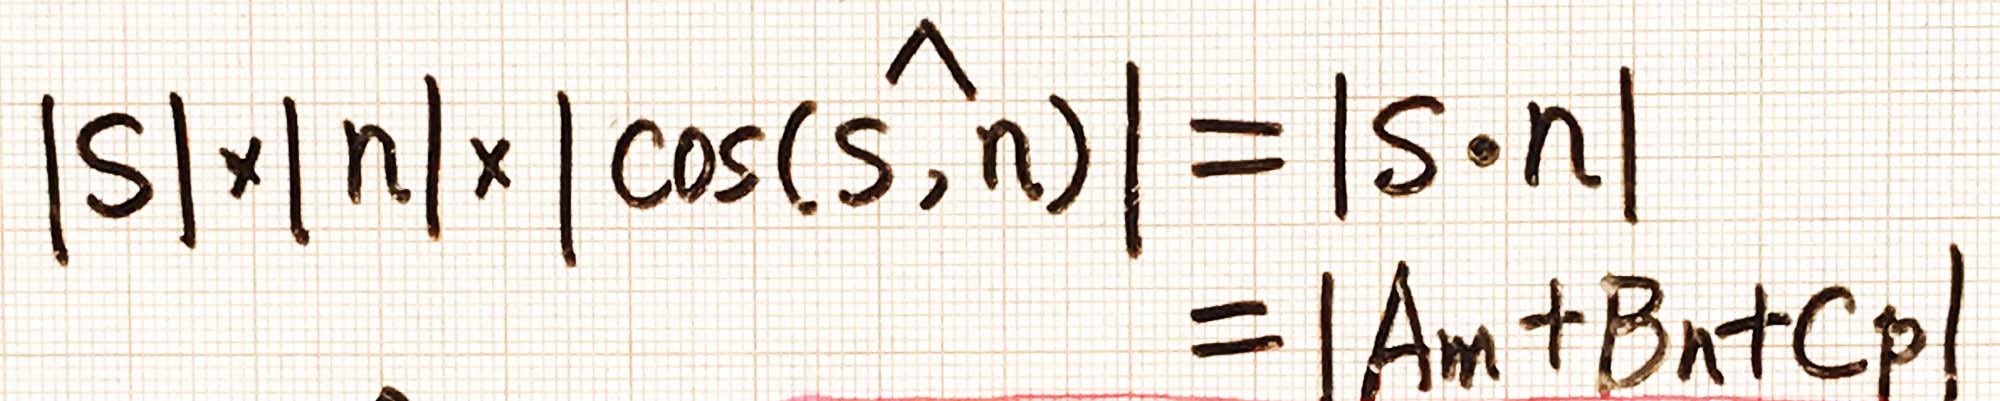 |s|×|n|×|cos(s,^n)|=|s·n|
=|Am+Bn+Cp|